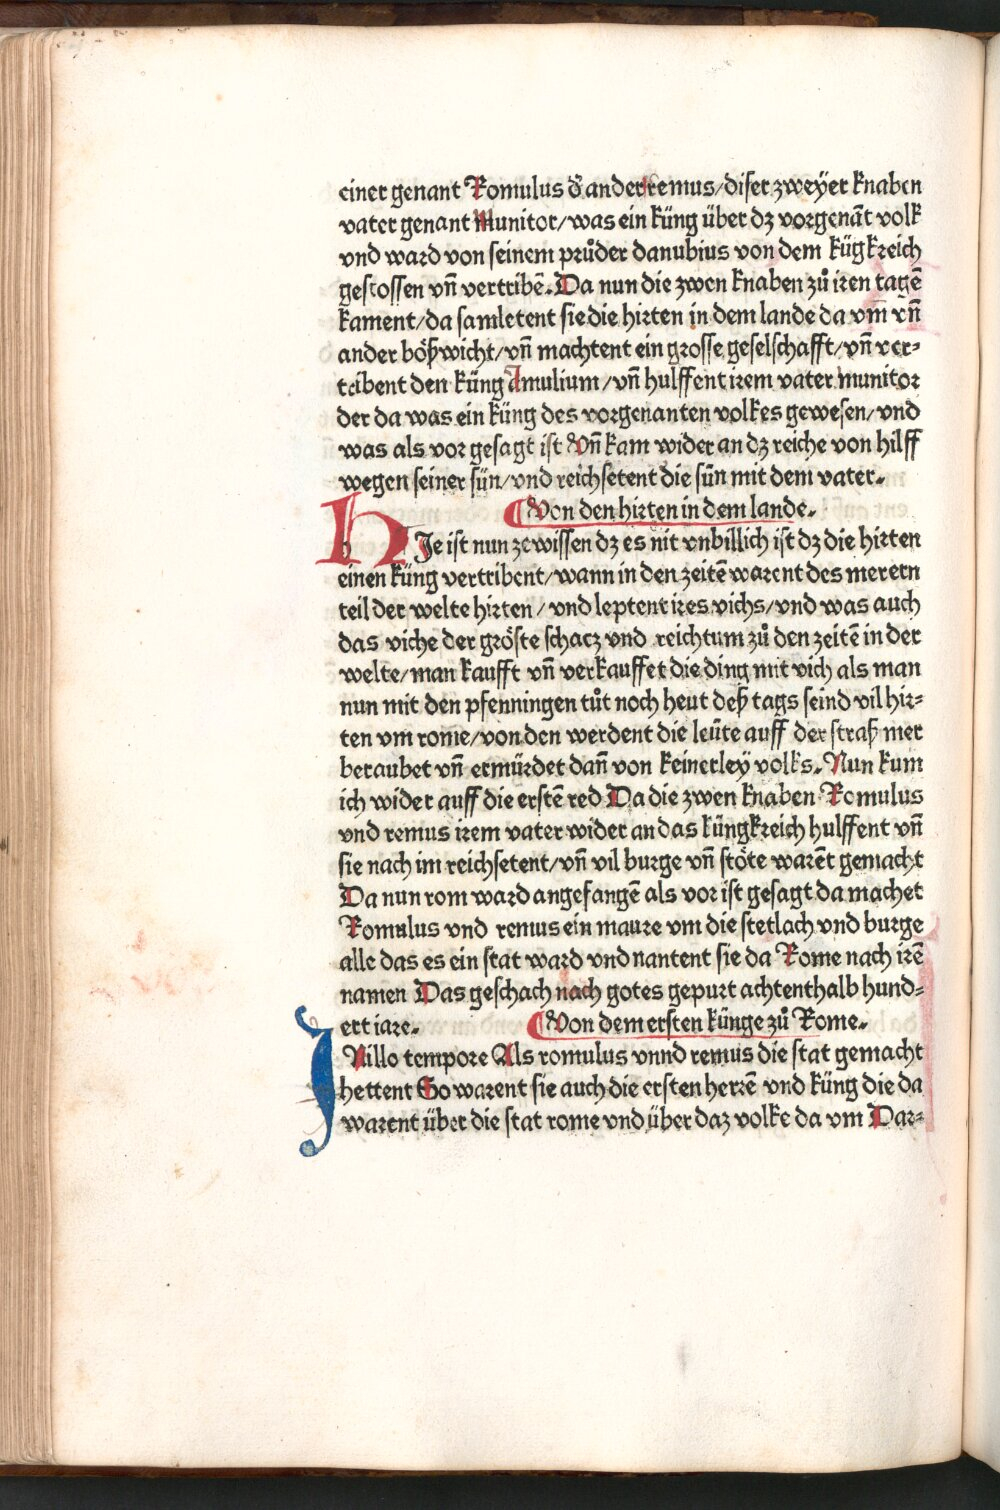 einer genant Romulus d᷑ ander remus/diser zweyer knaben
vater genant Munitor/was ein küng über dz vorgenāt volk
vnd ward von seinem průder danubius von dem kügkreich
gestossen vn̄ vertribē. Da nun die zwen knaben zů iren tagē
kament/da samletent sie die hirten in dem lande da vm vn̄
ander bößwicht/vn̄ machtent ein grosse geselschafft/vn̄ ver⸗
tribent den küng Amulium/vn̄ hulffent irem vater munitor
der da was ein küng des vorgenanten volkes gewesen/vnd
was als vor gesagt ist Vn̄ kam wider an dz reiche von hilff
wegen seiner sün/vnd reichsetent die sün mit dem vater.
Von den hirten in dem lande.
HJe ist nun ze wissen dz es nit vnbillich ist dz die hirten
einen küng vertribent/wann in den zeitē warent des merern
teil der welte hirten/vnd leptent ires vichs/vnd was auch
das viche der gröste schacz vnd reichtum zů den zeitē in der
welte/man kaufft vn̄ verkauffet die ding mit vich als man
nun mit den pfenningen tůt noch heut deß tags seind vil hir⸗
ten vm rome/von den werdent die leüte auff der straß mer
beraubet vn̄ ermürdet dan̄ von keinerley volks. Nun kum
ich wider auff die erstē red Da die zwen knaben Romulus
vnd remus irem vater wider an das küngkreich hulffent vn̄
sie nach im reichsetent/vn̄ vil burge vn̄ stöte warēt gemacht
Da nun rom ward angefangē als vor ist gesagt da machet
Romulus vnd remus ein maure vm die stetlach vnd burge
alle das es ein stat ward vnd nantent sie da Rome nach irē
namen Das geschach nach gotes gepurt achtenthalb hund⸗
ert iare. Von dem ersten künge zů Rome.
JNillo tempore Als romulus vnnd remus die stat gemacht
hettent So warent sie auch die ersten herrē vnd küng die da
warent über die stat rome vnd über daz volke da vm Dar⸗